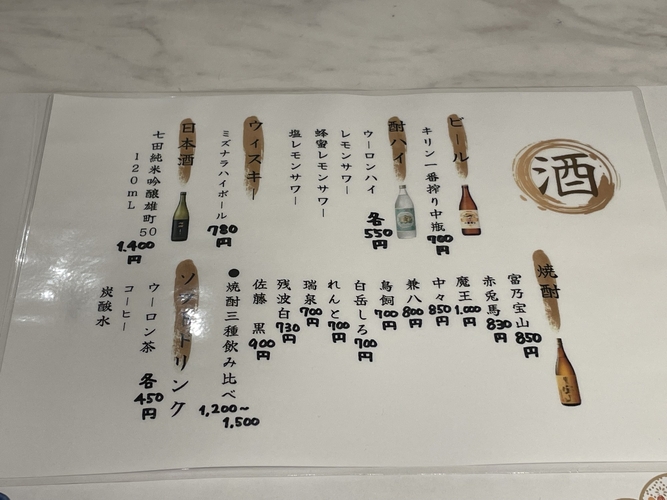 酒
ビール
キリン一番搾り中瓶
700円
酎ハイ
ウーロンハイ
レモンサワー
蜂蜜レモンサワー
塩レモンサワー
各550円
ウィスキー
ミズナラハイボール
780円
日本酒
七田純米吟醸雄町50
120mL
1,400円
焼酎
富乃宝山 850円
赤兎馬 830円
魔王 1,000円
中々 850円
兼八 800円
鳥飼 700円
白岳しろ 700円
れんと 700円
瑞泉 700円
残波白 730円
佐藤 黒 900円
●焼酎三種飲み比べ
1,200〜1,500
ソフトドリンク
ウーロン茶
コーヒー
炭酸水
各450円